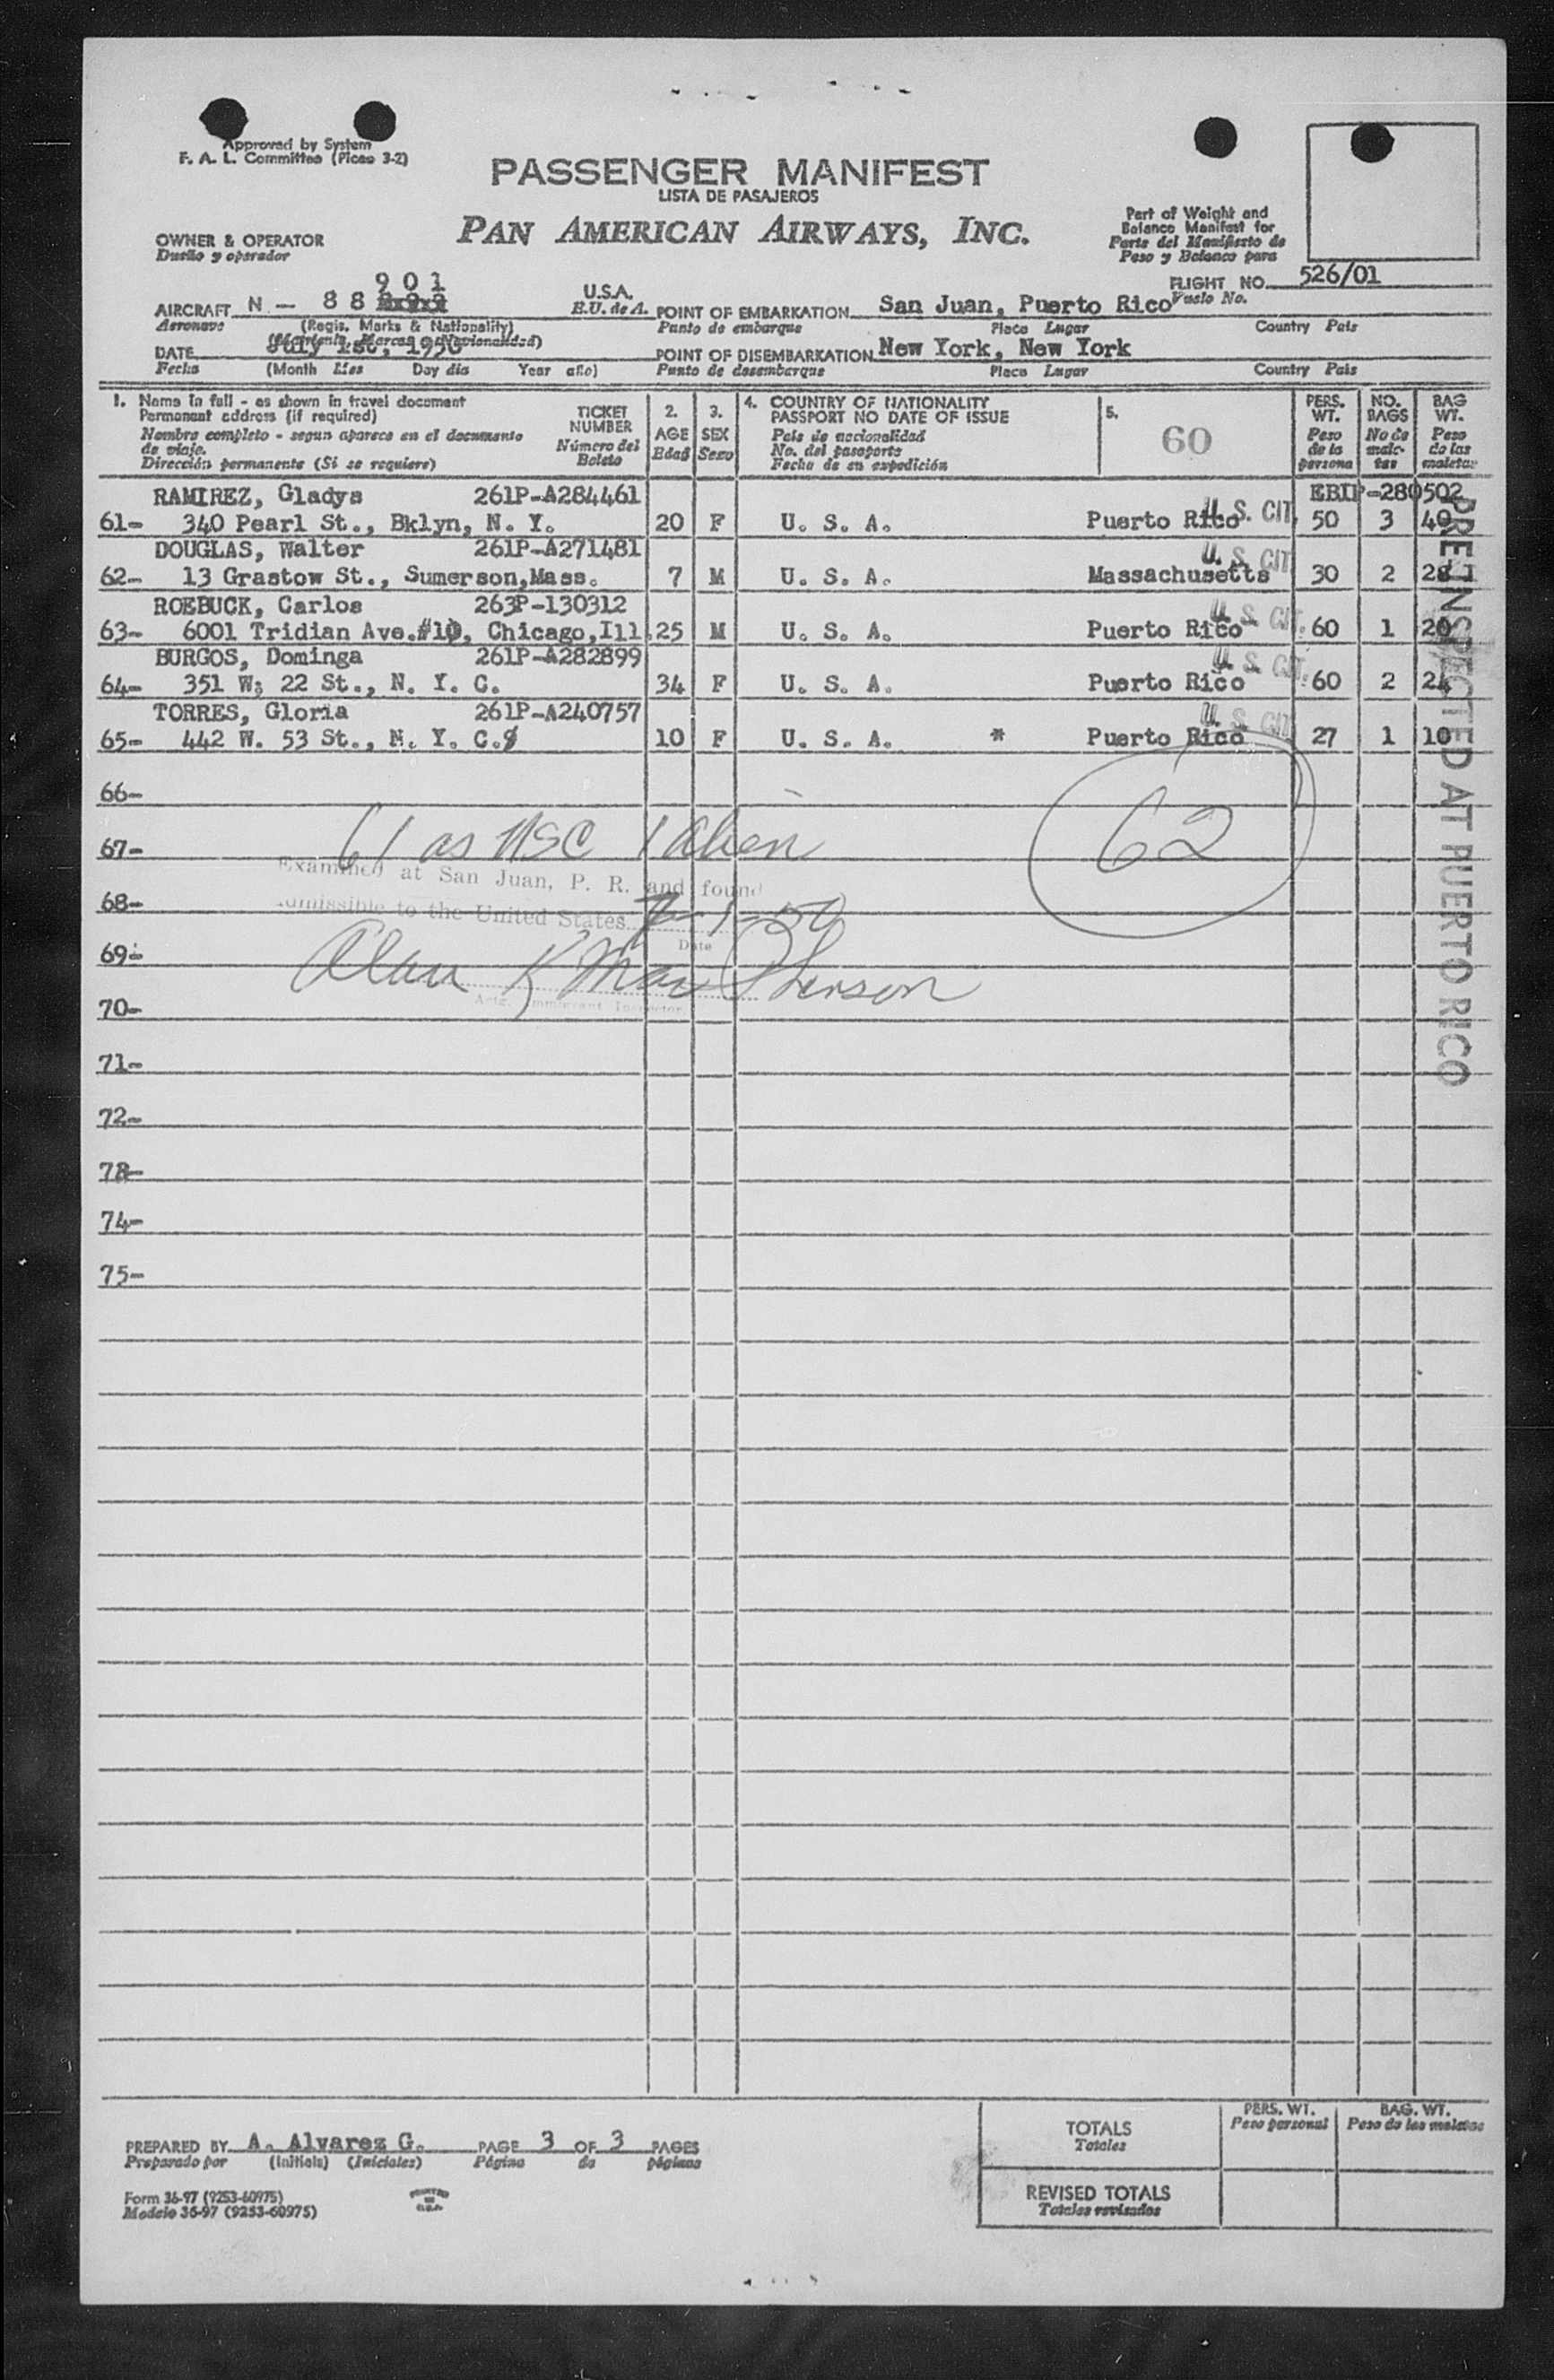 Approved by System
F. A. L. Committee (Picao 3-2)
PASSENGER MANIFEST
LISTA DE PASAJEROS
PAN AMERICAN AIRWAYS, INC.
Part of Weight and
Balance Manifest for
Parte del Manifiesto de
Peso y Balance para
OWNER & OPERATOR
Dueño y operador
FLIGHT NO. 526/01
Vuelo No.
901
AIRCRAFT N - 88
Aeronave
(Regis. Marks & Nationality)
U.S.A.
E.U. de A.
POINT OF EMBARKATION San Juan, Puerto Rico
Punto de embarque Place Lugar Country Pais
DATE July 1st, 1950
Fecha (Month Mes Day dia Year año)
POINT OF DISEMBARKATION New York, New York
Punto de desembarque Place Lugar Country Pais
1. Name in full - as shown in travel document
Permanent address (if required)
Nombre completo - segun aparece en el documento
de viaje.
Dirección permanente (Si se requiere)
TICKET
NUMBER
Número del
Boleto
2.
AGE
Edad
3.
SEX
Sexo
4. COUNTRY OF NATIONALITY
PASSPORT NO DATE OF ISSUE
Pais de nacionalidad
No. del pasaporte
Fecha de su expedición
5.
60
PERS.
WT.
Peso
de la
persona
NO.
BAGS
No de
male-
tas
BAG
WT.
Peso
de las
maletas
RAMIREZ, Gladys 261P-A284461 EBIP-280502
61- 340 Pearl St., Bklyn, N. Y. 20 F U. S. A. Puerto Rico U. S. CIT. 50 3 40
DOUGLAS, Walter 261P-A271481
62- 13 Grastow St., Sumerson,Mass. 7 M U. S. A. Massachusetts U. S. CIT. 30 2 28
ROEBUCK, Carlos 263P-130312
63- 6001 Tridian Ave.#10, Chicago,Ill. 25 M U. S. A. Puerto Rico U. S. CIT. 60 1 20
BURGOS, Dominga 261P-A282899
64- 351 W; 22 St., N. Y. C. 34 F U. S. A. Puerto Rico U. S. CIT. 60 2 24
TORRES, Gloria 261P-A240757
65- 442 W. 53 St., N. Y. C. 10 F U. S. A. * Puerto Rico U. S. CIT. 27 1 10
PRE-INSPECTED AT PUERTO RICO
66-
67- 61 as USC 1 alien 62
Examined at San Juan, P. R. and found
68- admissible to the United States 7-1-50
Date
69- Alan K MacPherson
Actg. Immigrant Inspector
70-
71-
72-
73-
74-
75-
PREPARED BY A. Alvarez G. PAGE 3 OF 3 PAGES
Preparado por (Initials) (Iniciales) Página de páginas
TOTALS
Totales
PERS. WT.
Peso personal
BAG. WT.
Peso de las maletas
REVISED TOTALS
Totales revisados
Form 36-97 (9253-60975)
Modelo 36-97 (9253-60975)
PRINTED
IN
U.S.A.